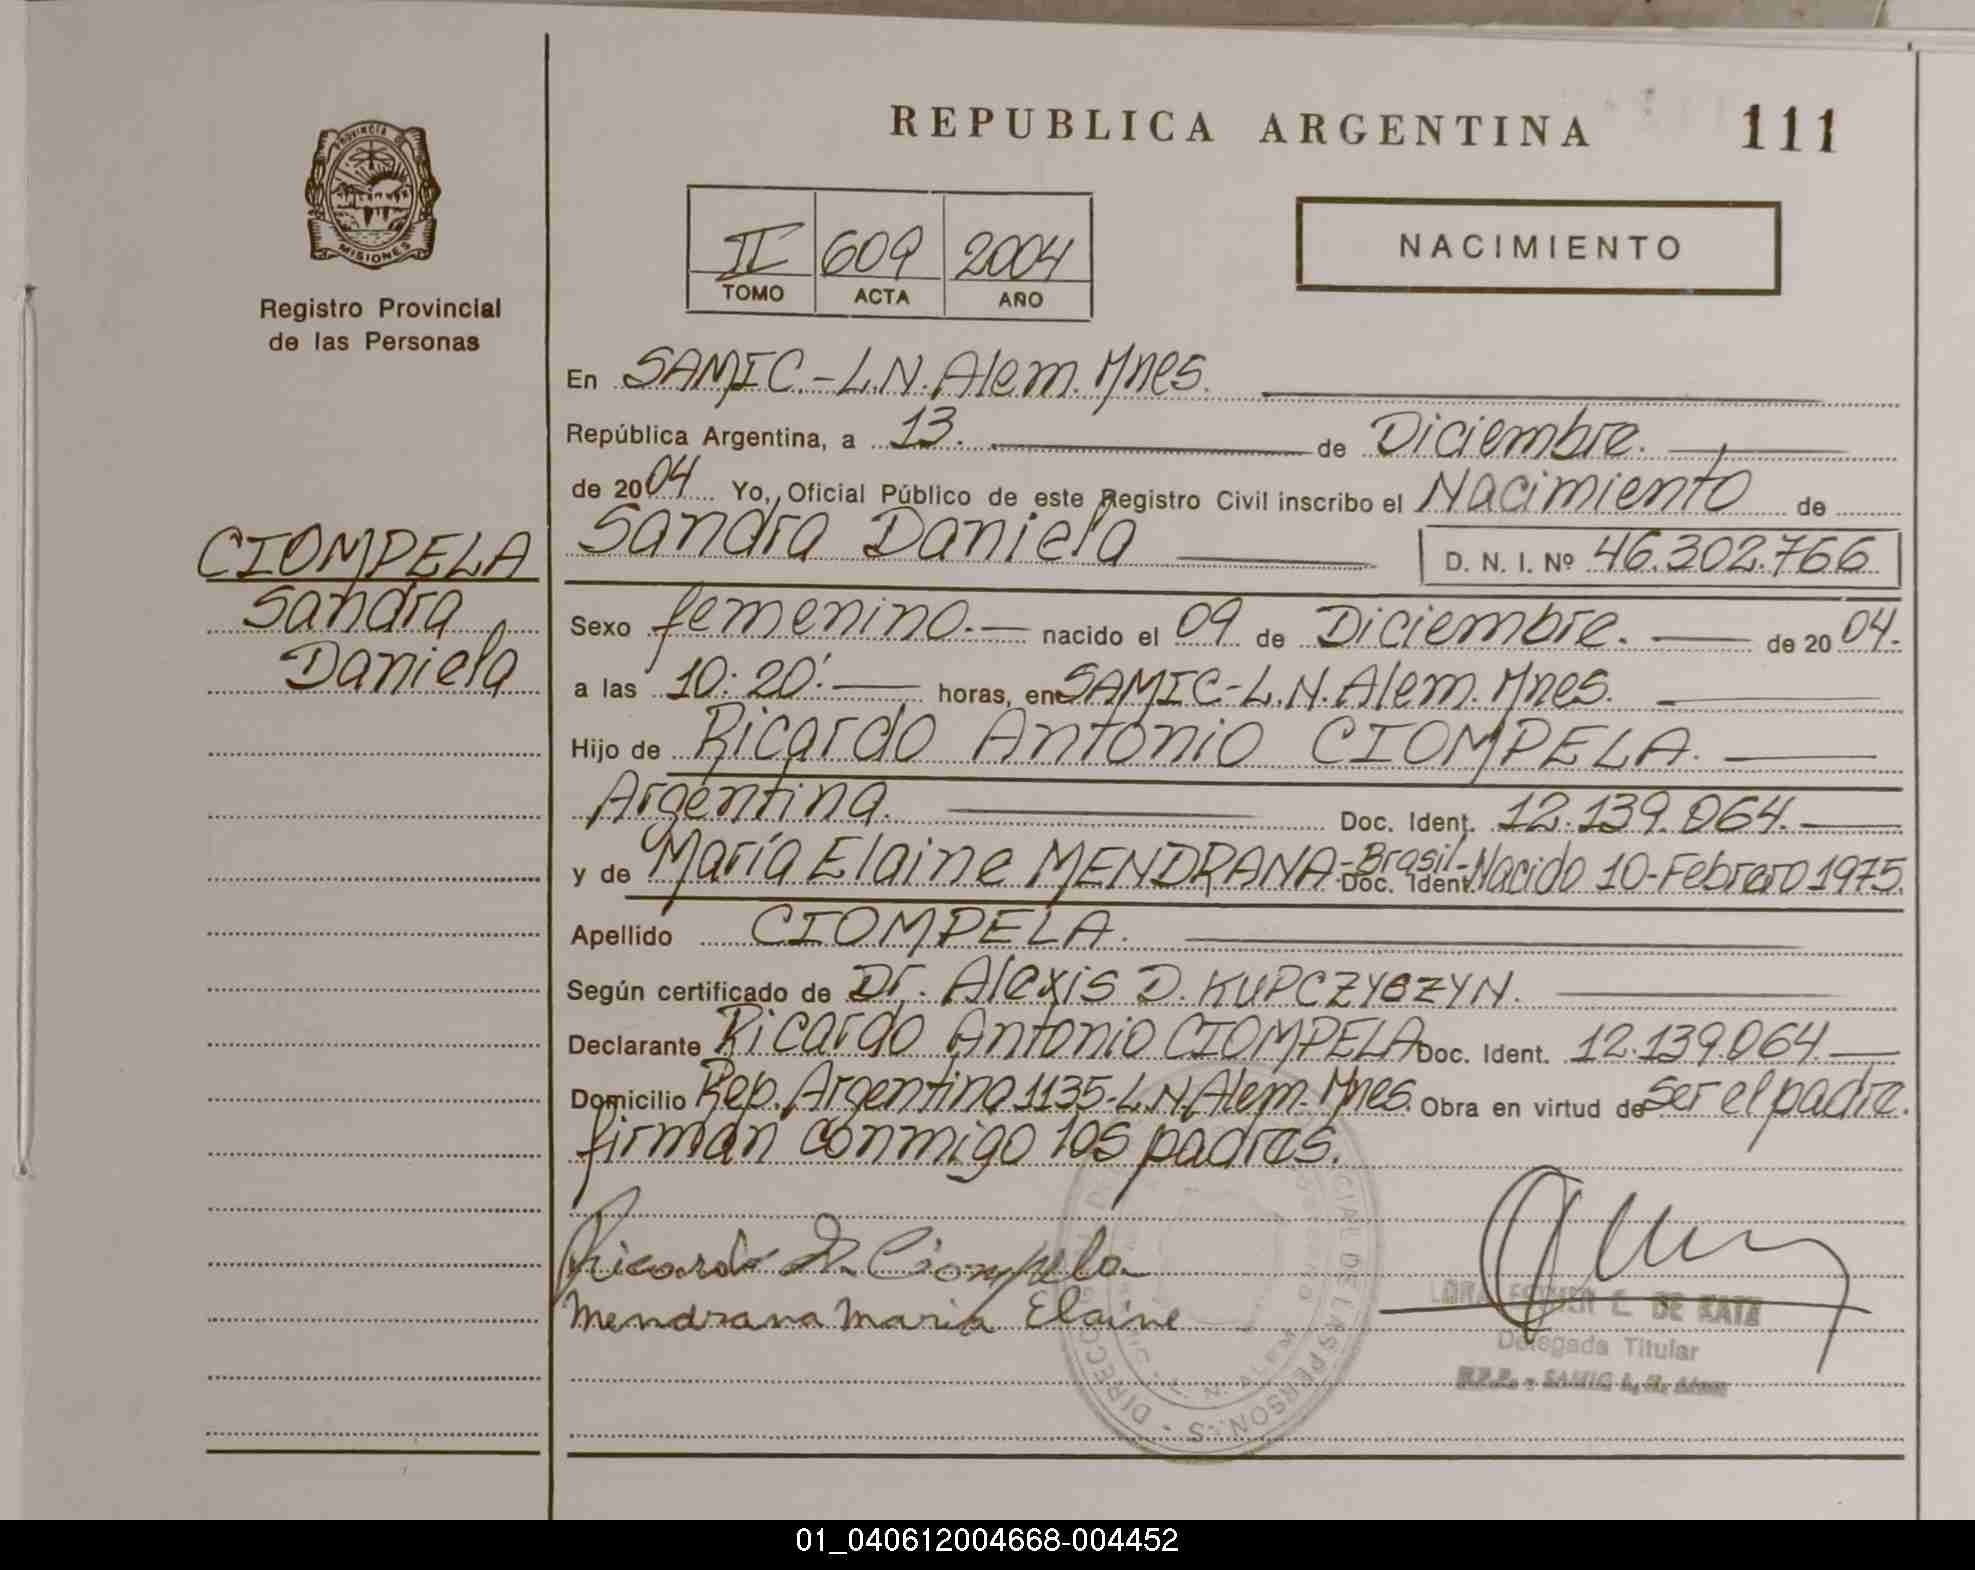 REPUBLICA ARGENTINA 111
PROVINCIA DE
MISIONES
Registro Provincial
de las Personas
II 609 2004
TOMO ACTA AÑO
NACIMIENTO
En SAMIC.-L.N.Alem.Mnes.
República Argentina, a 13. de Diciembre.
de 2004 Yo, Oficial Público de este Registro Civil inscribo el Nacimiento de
Sandra Daniela D. N. I. Nº 46.302.766
CIOMPELA
Sandra
Daniela
Sexo femenino.- nacido el 09 de Diciembre. de 2004.
a las 10:20'. horas, en SAMIC-L.N.Alem.Mnes.
Hijo de Ricardo Antonio CIOMPELA.
Argentina. Doc. Ident. 12.139.064.
y de María Elaine MENDRANA-Brasil- Doc. Ident. Nacido 10-Febrero 1975.
Apellido CIOMPELA.
Según certificado de Dr. Alexis D. KUPCZYSZYN.
Declarante Ricardo Antonio CIOMPELA Doc. Ident. 12.139.064.
Domicilio Rep. Argentina 1135-L.N.Alem-Mnes. Obra en virtud de ser el padre.
firman conmigo los padres.
Ricardo A. Ciompela
Mendrana Maria Elaine
DE KATZ
Delegada Titular
01_040612004668-004452